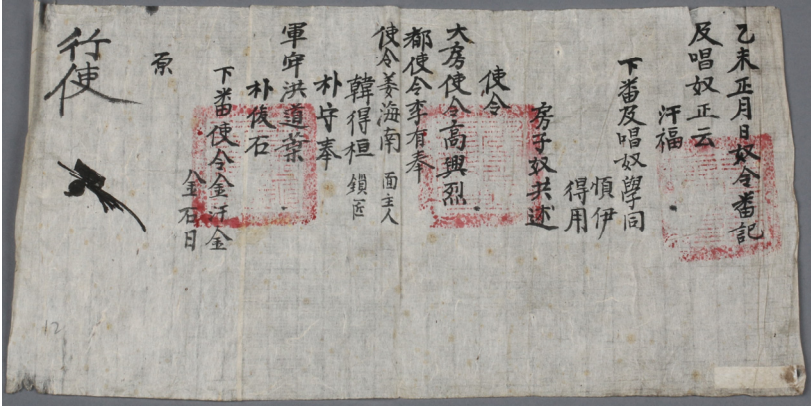 乙未正月日奴令番記
及唱奴正云
汗福
下番及唱奴學同
順伊
得用
房子奴共述
使令
大房使令高興烈
都使令李有奉
使令姜海南 面主人
韓得桓 鎖匠
朴守奉
軍牢洪道葉
朴俊石
下番使令金汗金
金石日
原
行使
12